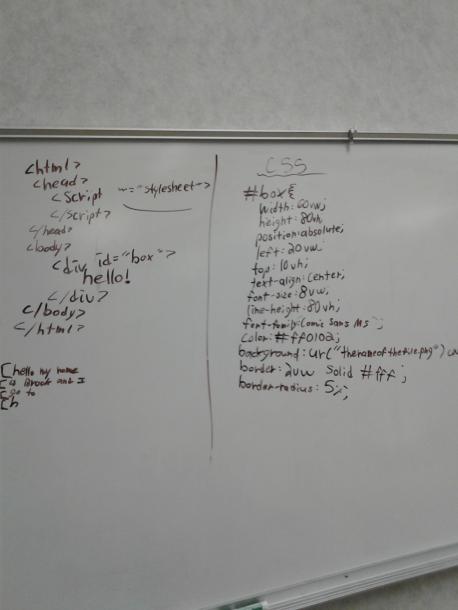 <html>
<head>
<script ="stylesheet">
</script>
</head>
<body>
<div id="box">
hello!
</div>
</body>
</html>
[hello my name
[is Brock and I
[go to
[h
CSS
#box{
width: 60vw;
height: 80vh;
position: absolute;
left: 20vw;
top: 10vh;
text-align: center;
font-size: 8vw;
line-height: 80vh;
font-family: Comic Sans MS";
color: #ff0102;
background: url("thenameofthefile.png")
border: 2vw solid #fff;
border-radius: